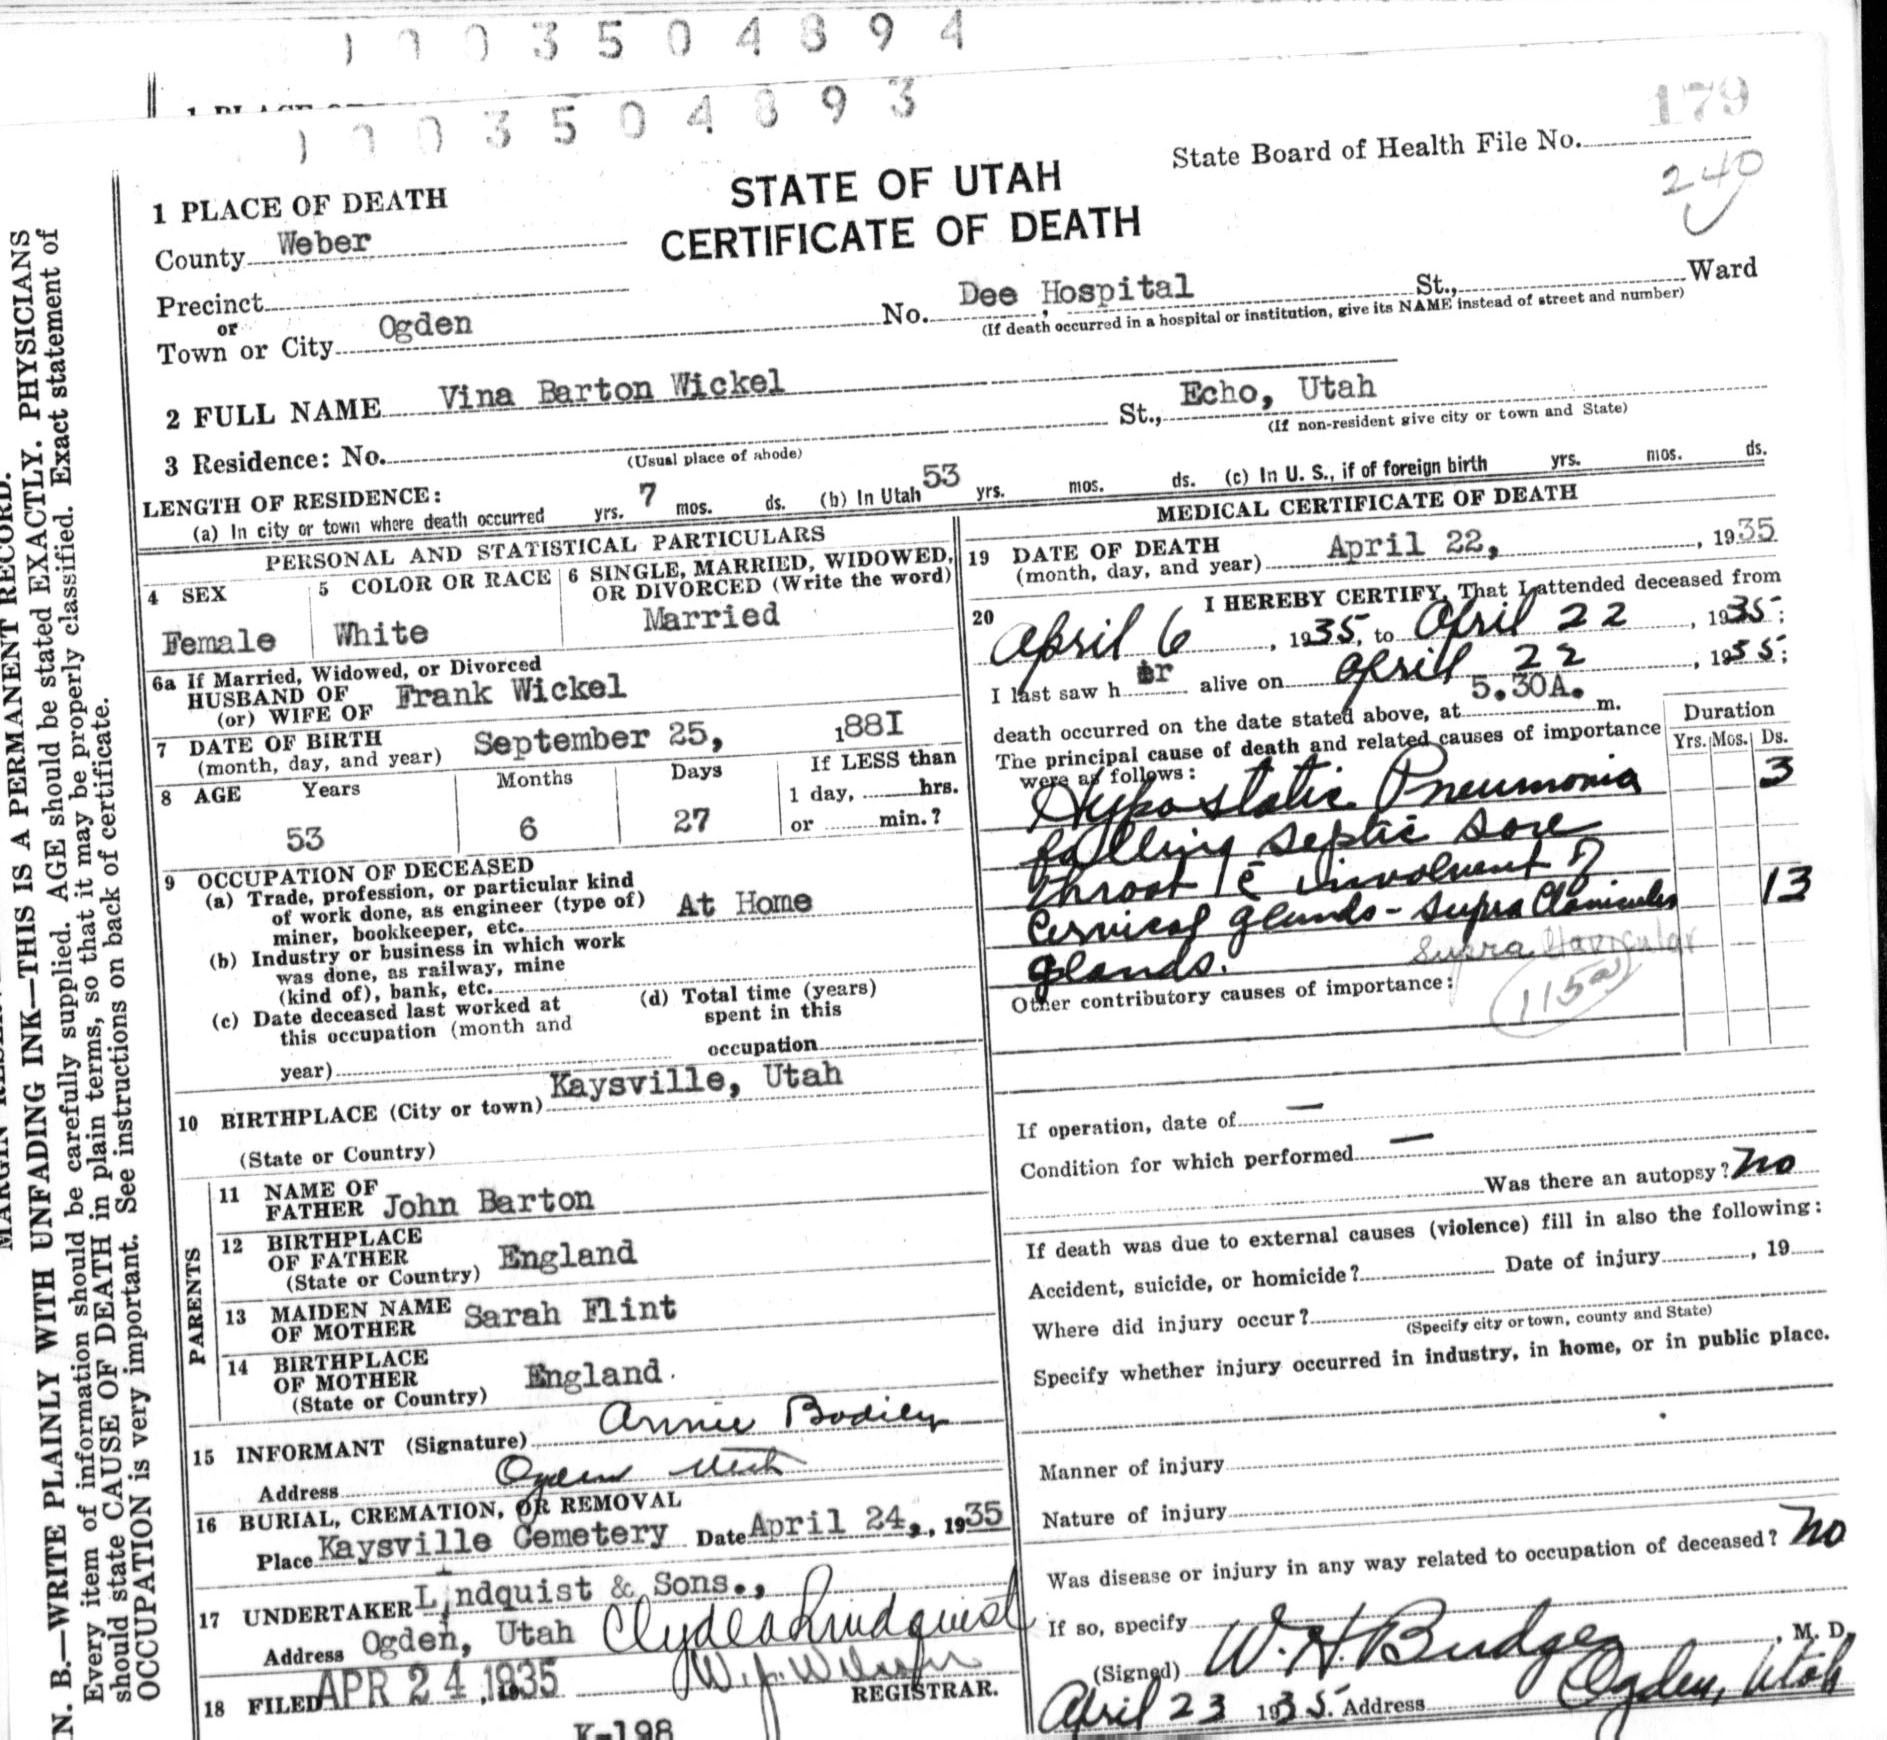 1003504894
1003504893
179
State Board of Health File No.
240
STATE OF UTAH
CERTIFICATE OF DEATH
1 PLACE OF DEATH
County Weber
Precinct
or
Town or City Ogden
No. Dee Hospital St., Ward
(If death occurred in a hospital or institution, give its NAME instead of street and number)
2 FULL NAME Vina Barton Wickel
3 Residence: No. St., Echo, Utah
(Usual place of abode) (If non-resident give city or town and State)
LENGTH OF RESIDENCE:
(a) In city or town where death occurred yrs. 7 mos. ds. (b) In Utah 53 yrs. mos. ds. (c) In U. S., if of foreign birth yrs. mos. ds.
PERSONAL AND STATISTICAL PARTICULARS
4 SEX
Female
5 COLOR OR RACE
White
6 SINGLE, MARRIED, WIDOWED,
OR DIVORCED (Write the word)
Married
6a If Married, Widowed, or Divorced
HUSBAND OF
(or) WIFE OF Frank Wickel
7 DATE OF BIRTH
(month, day, and year) September 25, 188I
8 AGE Years Months Days If LESS than
1 day, hrs.
or min.?
53 6 27
9 OCCUPATION OF DECEASED
(a) Trade, profession, or particular kind
of work done, as engineer (type of)
miner, bookkeeper, etc. At Home
(b) Industry or business in which work
was done, as railway, mine
(kind of), bank, etc.
(c) Date deceased last worked at
this occupation (month and
year)
(d) Total time (years)
spent in this
occupation
10 BIRTHPLACE (City or town) Kaysville, Utah
(State or Country)
PARENTS
11 NAME OF
FATHER John Barton
12 BIRTHPLACE
OF FATHER
(State or Country) England
13 MAIDEN NAME
OF MOTHER Sarah Flint
14 BIRTHPLACE
OF MOTHER
(State or Country) England.
15 INFORMANT (Signature) Annie Bodily
Address Ogden Utah
16 BURIAL, CREMATION, OR REMOVAL
Place Kaysville Cemetery Date April 24,, 1935
17 UNDERTAKER Lindquist & Sons.,
Address Ogden, Utah Clyde Lindquist
18 FILED APR 24 1935
REGISTRAR.
K-198
MEDICAL CERTIFICATE OF DEATH
19 DATE OF DEATH
(month, day, and year) April 22, , 1935
20 I HEREBY CERTIFY, That I attended deceased from
April 6, 1935, to April 22, 1935;
I last saw h er alive on April 22, 1935;
death occurred on the date stated above, at 5.30A. m.
The principal cause of death and related causes of importance
were as follows:
Duration
Yrs. Mos. Ds.
Hypostatic Pneumonia 3
following septic sore
throat c̄ involvment of
Cervical glands - Supra Clavicular 13
glands.
Supra Clavicular
Other contributory causes of importance:
115a
If operation, date of —
Condition for which performed —
Was there an autopsy? No
If death was due to external causes (violence) fill in also the following:
Accident, suicide, or homicide? Date of injury , 19
Where did injury occur?
(Specify city or town, county and State)
Specify whether injury occurred in industry, in home, or in public place.
Manner of injury
Nature of injury
Was disease or injury in any way related to occupation of deceased? No
If so, specify
(Signed) W. H. Budge, M. D.
April 23 1935. Address Ogden, Utah
N. B.—WRITE PLAINLY WITH UNFADING INK—THIS IS A PERMANENT RECORD.
Every item of information should be carefully supplied. AGE should be stated EXACTLY. PHYSICIANS
should state CAUSE OF DEATH in plain terms, so that it may be properly classified. Exact statement of
OCCUPATION is very important. See instructions on back of certificate.